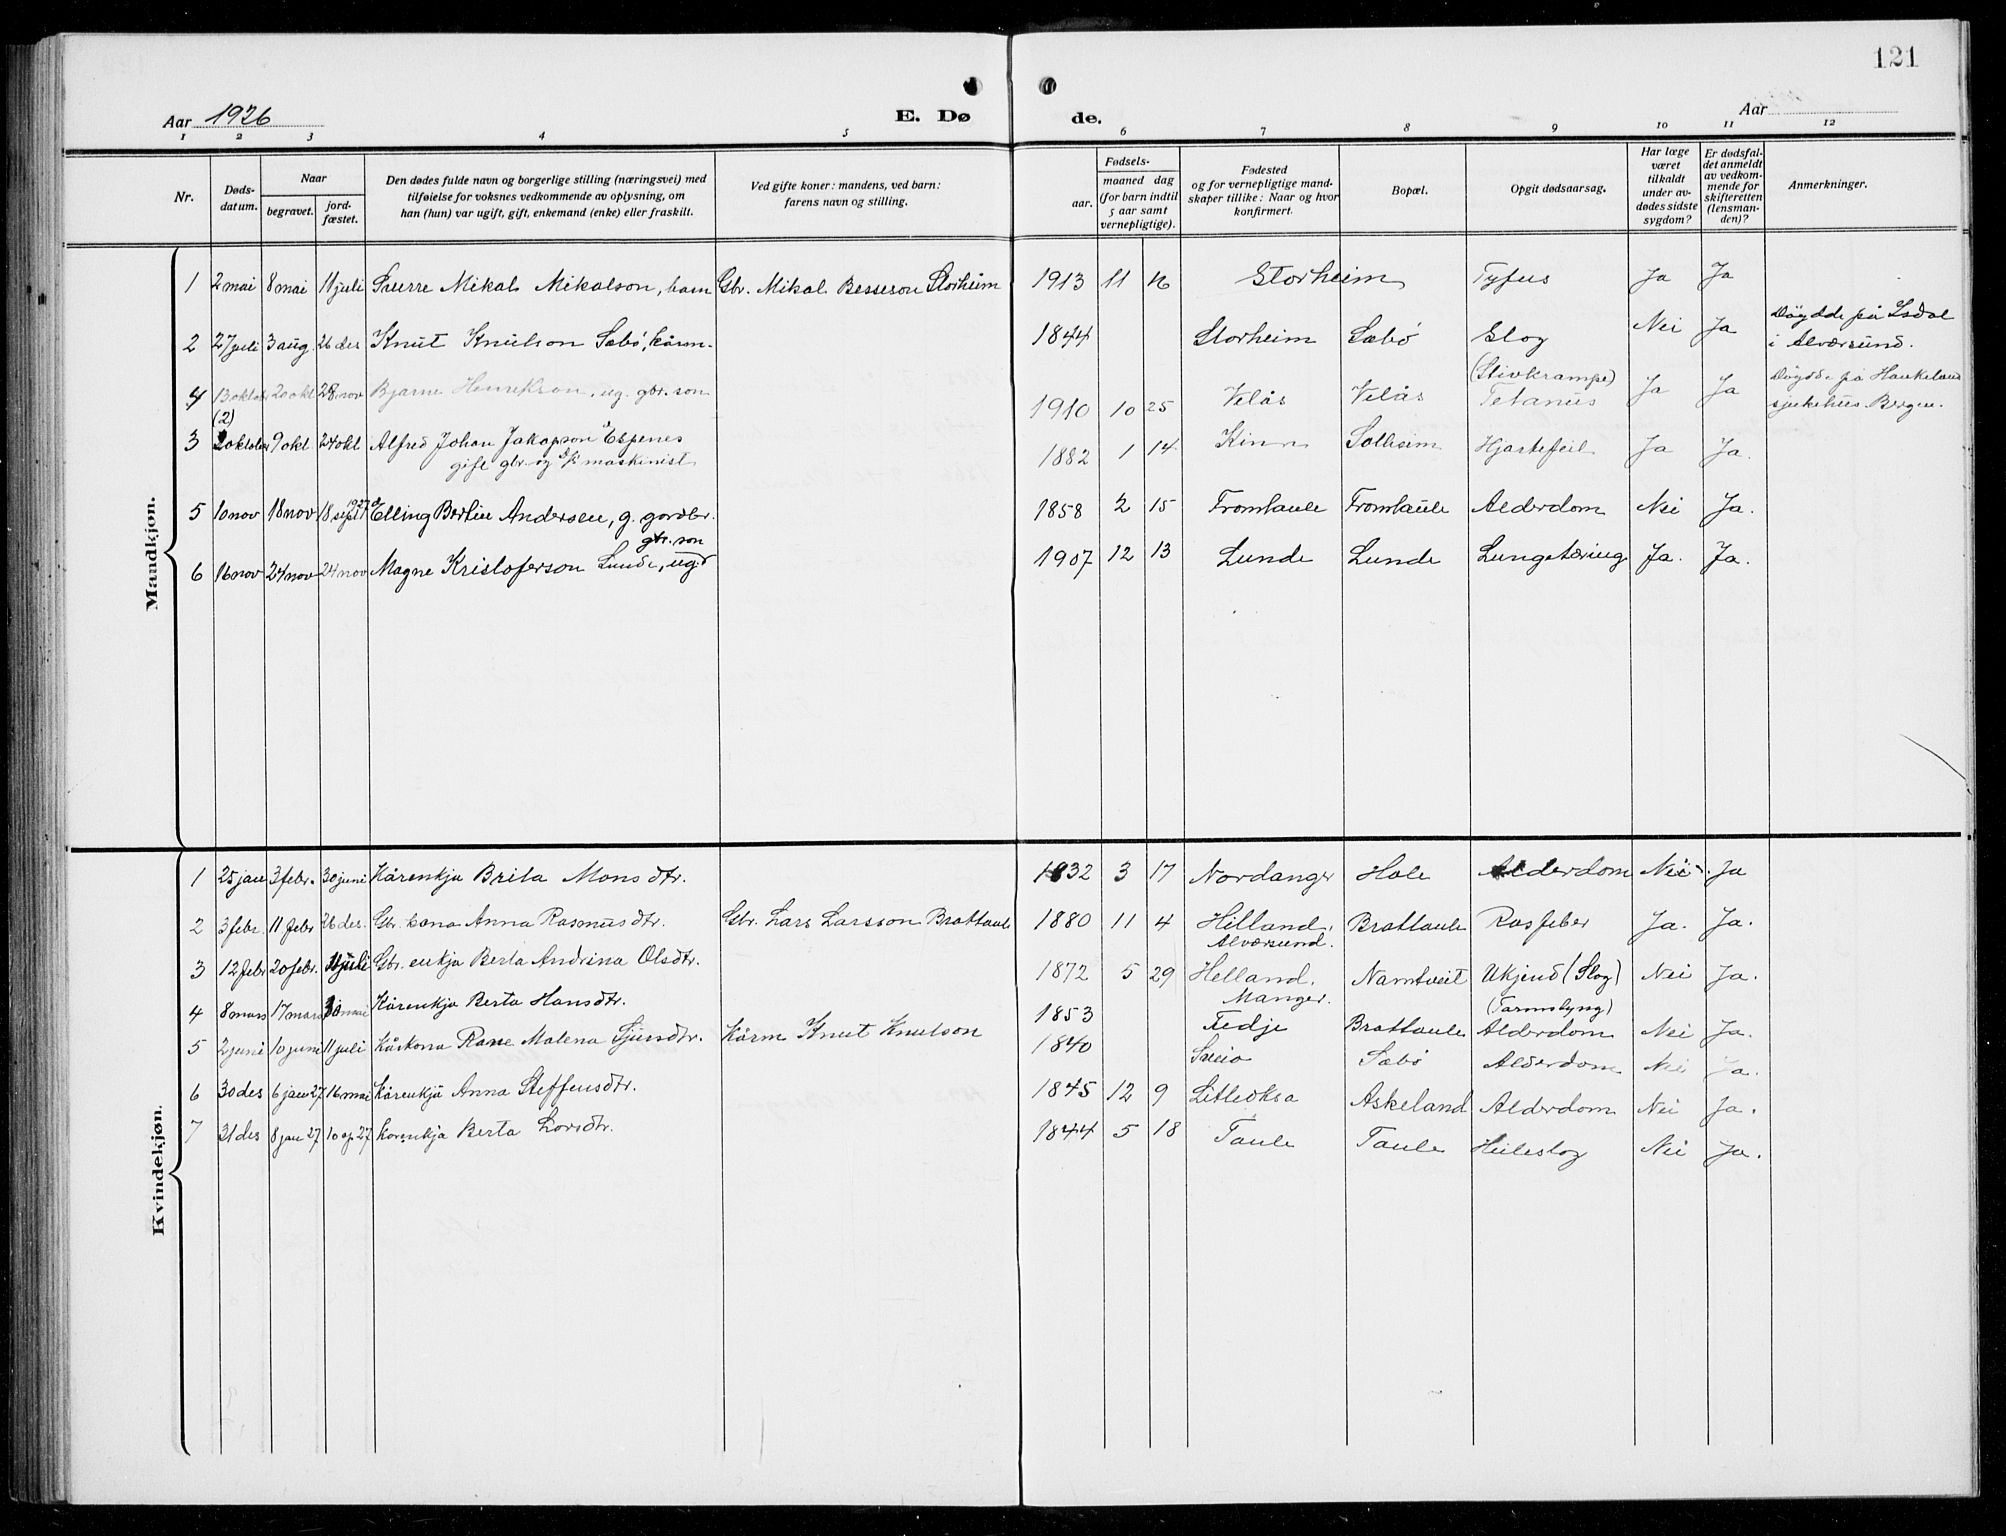 121
Aar 1926
E. Dø
de.
Aar
1 2 3 4 5 6 7 8 9 10 11 12
Nr.
Døds-
datum.
Naar
begravet.
jord-
fæstet.
Den dødes fulde navn og borgerlige stilling (næringsvei) med
tilføielse for voksnes vedkommende av oplysning, om
han (hun) var ugift, gift, enkemand (enke) eller fraskilt.
Ved gifte koner: mandens, ved barn:
farens navn og stilling.
Fødsels-
aar.
maaned dag
(for barn indtil
5 aar samt
vernepligtige).
Fødested
og for vernepligtige mand-
skaper tillike: Naar og hvor
konfirmert.
Bopæl.
Opgit dødsaarsag.
Har læge
været
tilkaldt
under av-
dødes sidste
sygdom?
Er dødsfal-
det anmeldt
av vedkom-
mende for
skifteretten
(lensman-
den)?
Anmerkninger.
Mandkjøn.
1 2 mai 8 mai 11 juli Sverre Mikal Mikalson, barn Gbr. Mikal Besseson Storheim 1913 11 16 Storheim Tyfus Ja Ja
2 27 juli 3 aug. 26 des Knut Knutson Sæbø, kårm. 1844 Storheim Sæbø Slag Nei Ja Døydde på Isdal
i Alværsund.
4 13 oktober 20 okt 28 nov Bjarne Henrikson, ug. gbr. son 1910 10 25 Velås Velås (Stivkrampe)
Tetanus Ja Ja Døydde på Haukeland
sjukehus. Bergen.
(2)
3 2 oktober 9 okt. 24 okt Alfred Johan Jakopson Espenes
gift gbr. og maskinist 1882 1 14 Kinn Solheim Hjartefeil Ja Ja.
5 10 nov 18 nov 18 sept 1927 Elling Bertin Andersen, g. gardbr. 1858 2 15 Fromtaule Fromtaule Alderdom Nei Ja.
gbr. son
6 16 nov 24 nov 24 nov Magne Kristoferson Lunde, ug. 1907 12 13 Lunde Lunde Lungetæring Ja. Ja.
Kvindekjøn.
1 25 jan 3 febr. 30 juni Kårenkja Brita Monsdtr. 1832 3 17 Nordanger Hole Alderdom Nei Ja
2 3 febr. 11 febr 26 des. Gbr. kona Anna Rasmusdtr. Gbr. Lars Larsson Brattaule 1880 11 4 Hilland,
Alværsund. Brattaule Rosfeber Ja. Ja.
3 12 febr 20 febr. 11 juli Gbr. enkja Berta Andrina Olsdtr. 1872 5 29 Helland,
Manger. Namtveit Ukjend (Slag)
(Tarmslyng) Nei Ja.
4 8 mars 17 mars 30 mai Kårenkja Berta Hansdtr. 1853 Fedje Brattaule Alderdom Nei Ja.
5 2 juni 10 juni 11 juli Kåskona Malena Kårm Knut Knutson 1840 Sveio Sæbø Alderdom Nei Ja.
6 30 des 6 jan 27 16 mai Kårenkja Anna Steffensdtr. 1845 12 9 Litleoksa Askeland Alderdom Nei Ja.
7 31 des 8 jan 27 10 ap 27 Korenkja Berta Larsdtr. 1844 5 18 Taule Taule Heileslag Nei Ja.